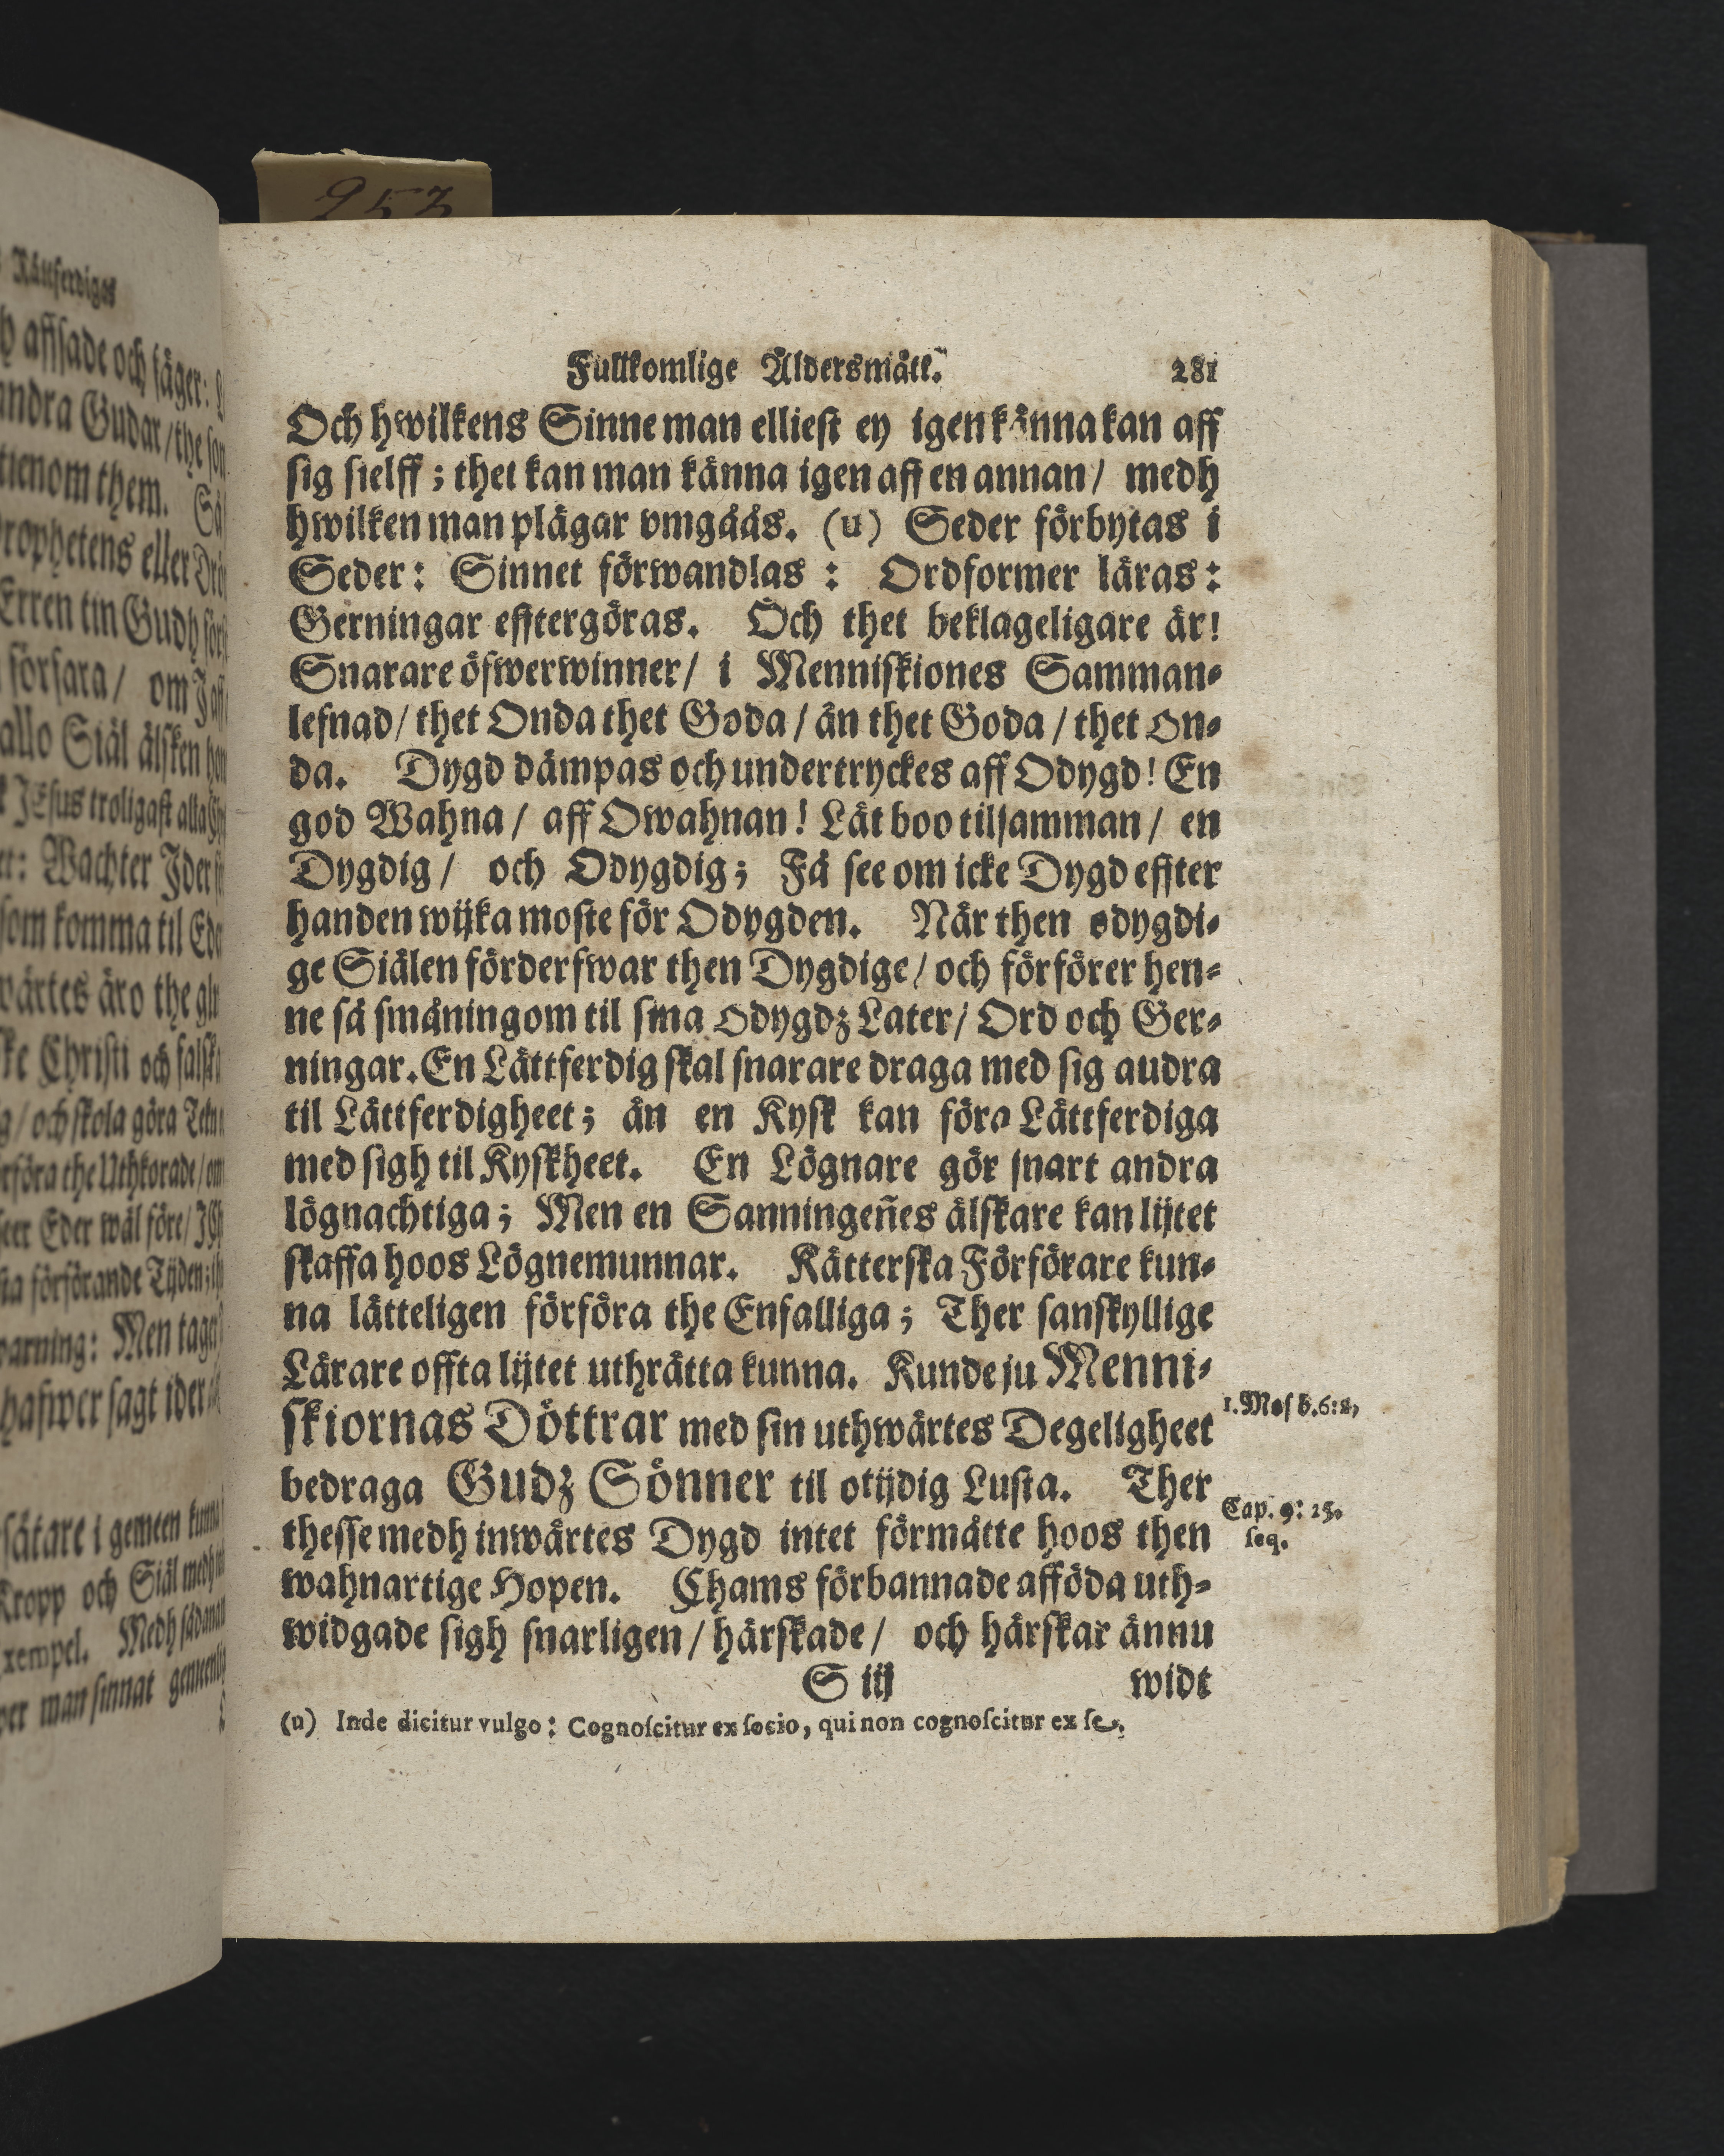 253
Fullkomlige Åldersmått.
281
Och hwilkens Sinne man elliest ey igenkänna kan aff
sig sielff; thet kan man känna igen aff en annan / medh
hwilken man plägar vmgåås. (u) Seder förbytas i
Seder: Sinnet förwandlas: Ordformer läras:
Gerningar efftergöras. Och thet beklageligare är!
Snarare öfwerwinner / i Menniskiones Samman-
lefnad / thet Onda thet Goda / än thet Goda / thet on-
da. Dygd dämpas och undertryckes aff Odygd! En
god Wahna / aff Owahnan! Låt boo tilsamman / en
Dygdig / och Odygdig; Få see om icke Dygd effter
handen wijka moste för Odygden. När then odygdi-
ge Siälen förderfwar then Dygdige / och förförer hen-
ne så småningom til sina odygdz Later / Ord och Ger-
ningar. En Lättferdig skal snarare draga med sig audra
til Lättferdigheet; än en Kysk kan föra Lättferdiga
med sigh til Kyskheet. En Lögnare gör snart andra
lögnachtiga; Men en Sanningen̄es älskare kan lijtet
skaffa hoos Lögnemunnar. Kätterska Förförare kun-
na lätteligen förföra the Enfalliga; Ther sanskyllige
Lärare offta lijtet uthrätta kunna. Kunde ju Menni-
skiornas Döttrar med sin uthwärtes Degeligheet
1. Mos b. 6: 2,
bedraga Gudz Sönner til otijdig Lusta. Ther
Cap. 9: 25.
thesse medh inwärtes Dygd intet förmåtte hoos then
seq.
wahnartige Hopen. Chams förbannade afföda uth-
widgade sigh snarligen / härskade / och härskar ännu
S iij
widt
(u) Inde dicitur vulgo: Cognoscitur ex socio, qui non cognoscitur ex se.